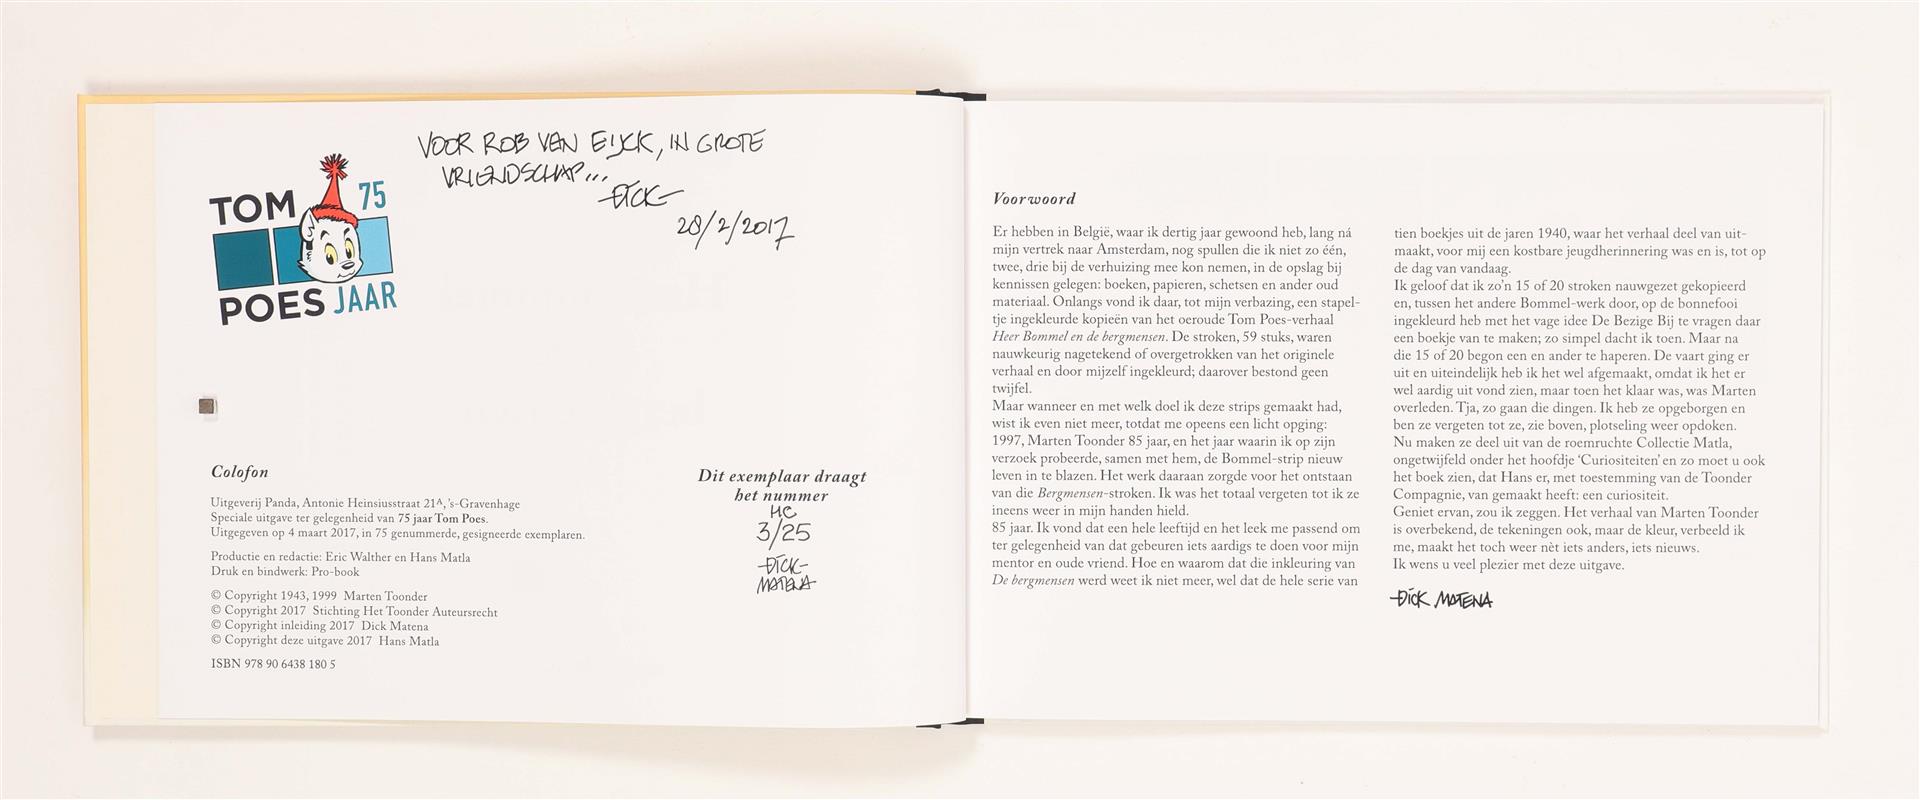 VOOR ROB VAN EIJCK, IN GROTE
VRIENDSCHAP...
DICK
28/2/2017
TOM 75
POES JAAR
Colofon
Uitgeverij Panda, Antonie Heinsiusstraat 21A, 's-Gravenhage
Speciale uitgave ter gelegenheid van 75 jaar Tom Poes.
Uitgegeven op 4 maart 2017, in 75 genummerde, gesigneerde exemplaren.
Productie en redactie: Eric Walther en Hans Matla
Druk en bindwerk: Pro-book
© Copyright 1943, 1999 Marten Toonder
© Copyright 2017 Stichting Het Toonder Auteursrecht
© Copyright inleiding 2017 Dick Matena
© Copyright deze uitgave 2017 Hans Matla
ISBN 978 90 6438 180 5
Dit exemplaar draagt
het nummer
HC
3/25
DICK
MATENA
Voorwoord
Er hebben in België, waar ik dertig jaar gewoond heb, lang ná
mijn vertrek naar Amsterdam, nog spullen die ik niet zo één,
twee, drie bij de verhuizing mee kon nemen, in de opslag bij
kennissen gelegen: boeken, papieren, schetsen en ander oud
materiaal. Onlangs vond ik daar, tot mijn verbazing, een stapel-
tje ingekleurde kopieën van het oeroude Tom Poes-verhaal
Heer Bommel en de bergmensen. De stroken, 59 stuks, waren
nauwkeurig nagetekend of overgetrokken van het originele
verhaal en door mijzelf ingekleurd; daarover bestond geen
twijfel.
Maar wanneer en met welk doel ik deze strips gemaakt had,
wist ik even niet meer, totdat me opeens een licht opging:
1997, Marten Toonder 85 jaar, en het jaar waarin ik op zijn
verzoek probeerde, samen met hem, de Bommel-strip nieuw
leven in te blazen. Het werk daaraan zorgde voor het ontstaan
van die Bergmensen-stroken. Ik was het totaal vergeten tot ik ze
ineens weer in mijn handen hield.
85 jaar. Ik vond dat een hele leeftijd en het leek me passend om
ter gelegenheid van dat gebeuren iets aardigs te doen voor mijn
mentor en oude vriend. Hoe en waarom dat die inkleuring van
De bergmensen werd weet ik niet meer, wel dat de hele serie van
tien boekjes uit de jaren 1940, waar het verhaal deel van uit-
maakt, voor mij een kostbare jeugdherinnering was en is, tot op
de dag van vandaag.
Ik geloof dat ik zo'n 15 of 20 stroken nauwgezet gekopieerd
en, tussen het andere Bommel-werk door, op de bonnefooi
ingekleurd heb met het vage idee De Bezige Bij te vragen daar
een boekje van te maken; zo simpel dacht ik toen. Maar na
die 15 of 20 begon een en ander te haperen. De vaart ging er
uit en uiteindelijk heb ik het wel afgemaakt, omdat ik het er
wel aardig uit vond zien, maar toen het klaar was, was Marten
overleden. Tja, zo gaan die dingen. Ik heb ze opgeborgen en
ben ze vergeten tot ze, zie boven, plotseling weer opdoken.
Nu maken ze deel uit van de roemruchte Collectie Matla,
ongetwijfeld onder het hoofdje 'Curiositeiten' en zo moet u ook
het boek zien, dat Hans er, met toestemming van de Toonder
Compagnie, van gemaakt heeft: een curiositeit.
Geniet ervan, zou ik zeggen. Het verhaal van Marten Toonder
is overbekend, de tekeningen ook, maar de kleur, verbeeld ik
me, maakt het toch weer nèt iets anders, iets nieuws.
Ik wens u veel plezier met deze uitgave.
DICK MATENA